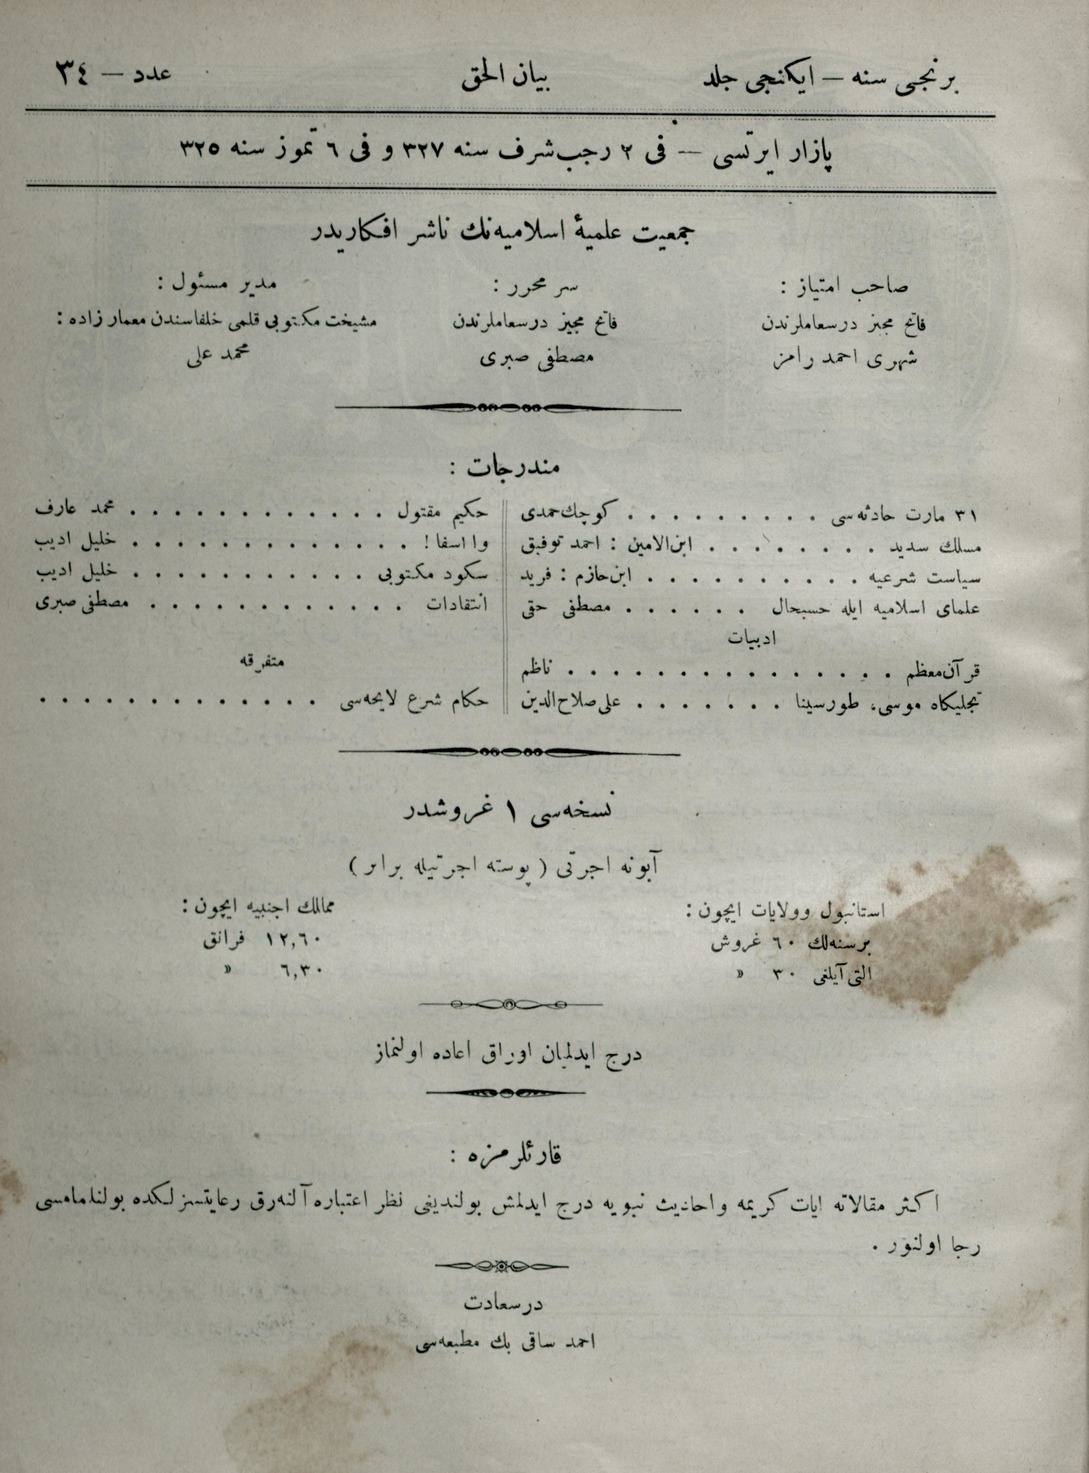 برنجی سنه — ایکنجی جلد
بیان الحق
عدد — ٣٤
پازار ایرتسی — فی ٢ رجب شرف سنه ٣٢٧ و فی ٦ تموز سنه ٣٢٥
جمعیت علمیهٔ اسلامیه نك ناشر افکاریدر
صاحب امتیاز :
فاتح مجیز درسعاملرندن
شهری احمد رامز
سر محرر :
فاتح مجیز درسعاملرندن
مصطفی صبری
مدیر مسئول :
مشیخت مکتوبی قلمی خلفاسندن معمار زاده :
محمد علی
مندرجات :
٣١ مارت حادثه سی . . . . . . . . . کوچك حمدی
مسلك سدید . . . . . . . ابن الامین : احمد توفیق
سیاست شرعیه . . . . . . . . . . ابن حازم : فرید
علمای اسلامیه ایله حسبحال . . . . . . مصطفی حقی
ادبیات
قرآن معظم . . . . . . . . . . . . . . . ناظم
تجلیکاه موسی، طورسینا . . . . . . . علی صلاح الدین
حکیم مقتول . . . . . . . . . . . . محمد عارف
وا اسفا ! . . . . . . . . . . . . . خلیل ادیب
سکود مکتوبی . . . . . . . . . . . خلیل ادیب
انتقادات . . . . . . . . . . . . مصطفی صبری
متفرقه
حکام شرع لایحه سی . . . . . . . . . . . . .
نسخه سی ١ غروشدر
آبونه اجرتی ( پوسته اجرتیله برابر )
استانبول وولایات ایچون :
برسنه لك ٦٠ غروش
التی آیلغی ٣٠ «
ممالك اجنبیه ایچون :
١٢,٦٠ فرانق
٦,٣٠ «
درج ایدلمیان اوراق اعاده اولنماز
قارئلرمزه :
اکثر مقالاته ایات کریمه واحادیث نبویه درج ایدلمش بولندیغی نظر اعتباره آلنه رق رعایتسزلکده بولنلمامسی
رجا اولنور .
درسعادت
احمد ساقی بك مطبعه سی